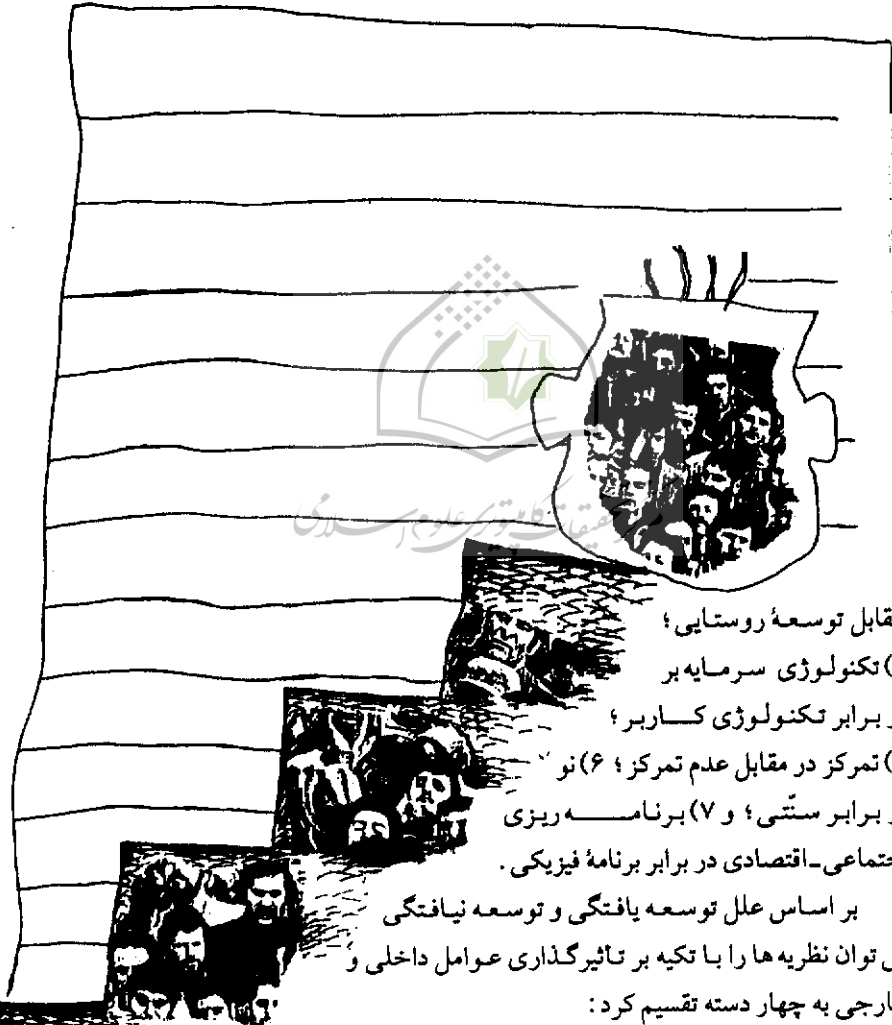 مرکز تحقیقات کامپیوتری علوم اسلامی
قابل توسعهٔ روستایی؛
) تکنولوژی سرمایه‌بر
ر برابر تکنولوژی کاربر؛
) تمرکز در مقابل عدم تمرکز؛ ۶) نو
ر برابر سنّتی؛ و ۷) برنامه ریزی
جتماعی-اقتصادی در برابر برنامهٔ فیزیکی.
بر اساس علل توسعه یافتگی و توسعه نیافتگی
ی توان نظریه ها را با تکیه بر تأثیرگذاری عوامل داخلی و
ارجی به چهار دسته تقسیم کرد: